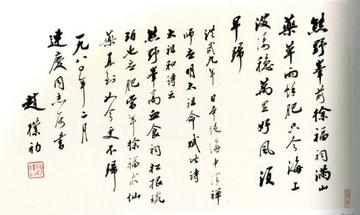 熊野峯前徐福祠满山
药草雨馀肥只今海上
波涛稳万里好风须
早归
洪武九年日本绝海中津禅
师应明太祖命赋此诗
太祖和诗云
熊野峯高血食祠松根琥
珀也应肥当年徐福求仙
药直到如今更不归
一九八〇年二月
建庆同志属书
赵朴初